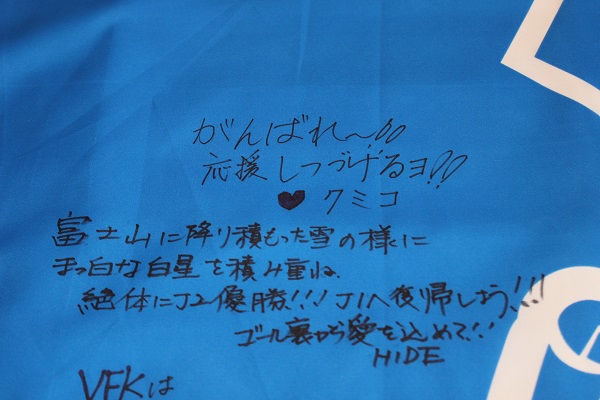 がんばれ〜!!
応援しつづけるヨ!!
♥クミコ
富士山に降り積もった雪の様に
まっ白な白星を積み重ね、
絶体にJ2優勝!!!J1へ復帰しよう!!!
ゴール裏から愛を込めて!!
HIDE
VFKは